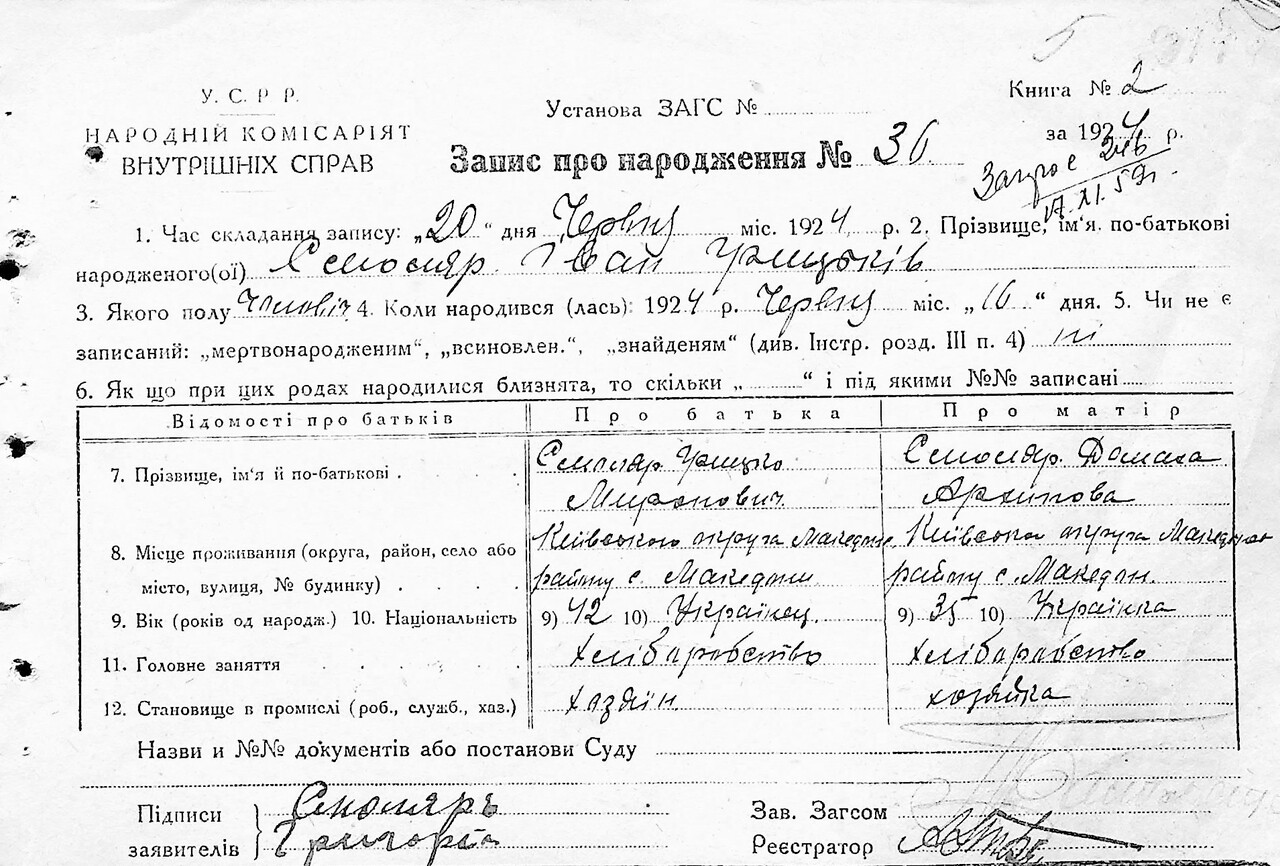 У. С. Р Р.
НАРОДНІЙ КОМІСАРІЯТ
ВНУТРІШНІХ СПРАВ
Установа ЗАГС №
Книга № 2
за 1924 р.
Запис про народження № 36
1. Час складання запису: „20“ дня Червня міс. 1924 р. 2. Прізвище, ім'я. по-батькові
народженого(ої) Іван Грицьків
3. Якого полу 4. Коли народився (лась): 1924 р. Червня міс. „16“ дня. 5. Чи не є
записаний: „мертвонародженим“, „всиновлен.“, „знайденям“ (див. Інстр. розд. III п. 4) ні
6. Як що при цих родах народилися близнята, то скільки „ “ і під якими №№ записані
Відомості про батьків Про батька Про матір
7. Прізвище, ім'я й по-батькові . Грицко Домаха
Миронович Архипова
8. Місце проживання (округа, район, село або Київського округа Київська округа
місто, вулиця, № будинку) . району с. Македони району с. Македон.
9. Вік (років од народж.) 10. Національність 9) 42 10) Українец 9) 35 10) Українка
11. Головне заняття Хліборобство Хліборобство
12. Становище в промислі (роб., служб., хаз.) хазяїн. хозяйка
Назви и №№ документів або постанови Суду
Підписи
заявителів Григорій
Зав. Загсом
Реєстратор